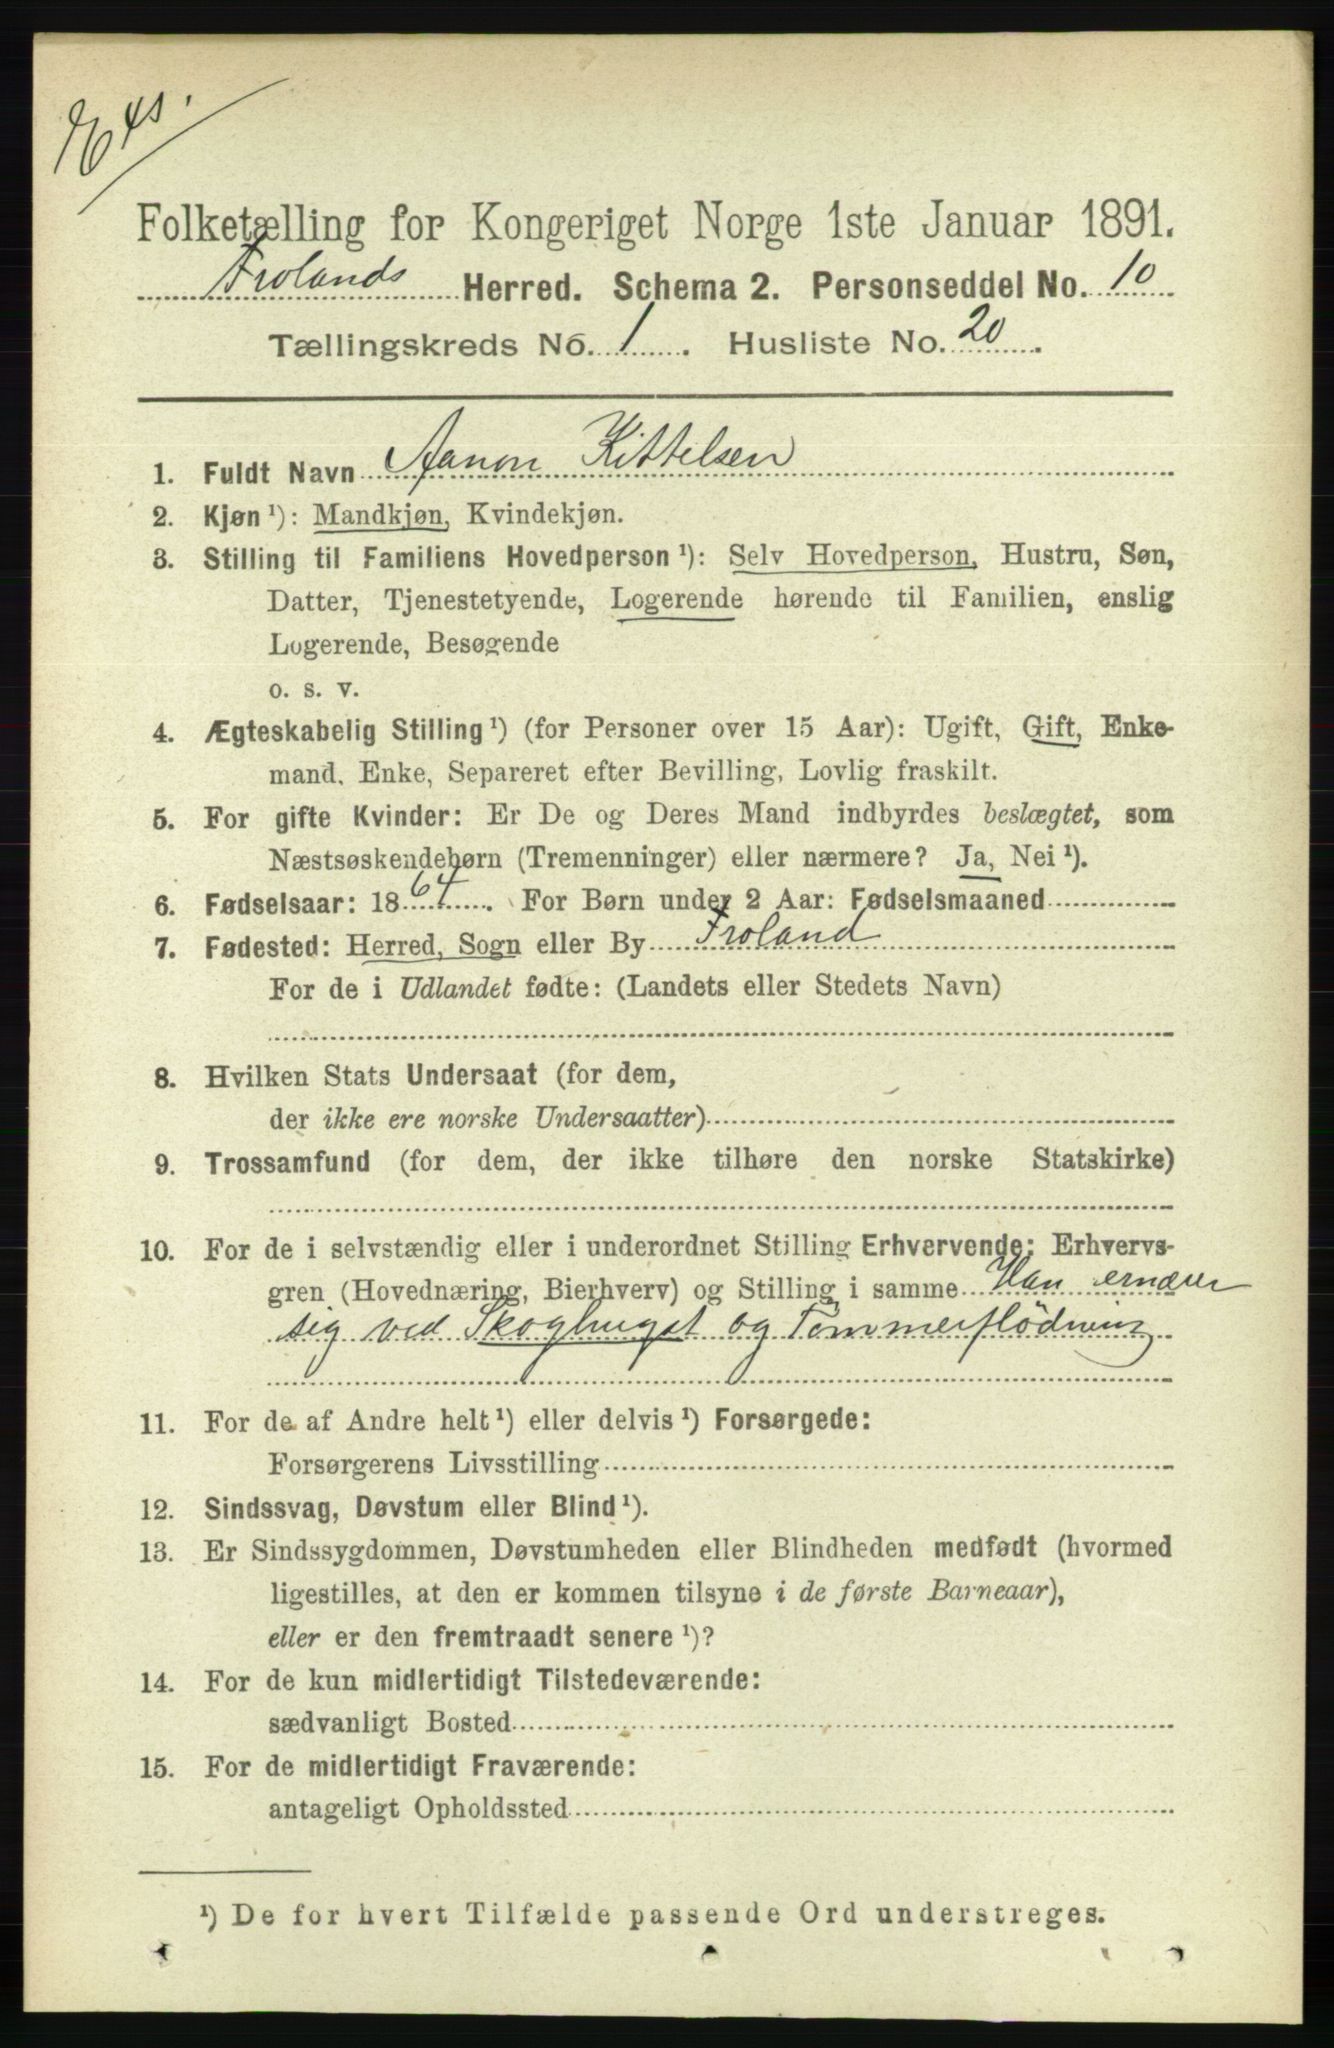 Folketælling for Kongeriget Norge 1ste Januar 1891.
Frolands Herred. Schema 2. Personseddel No. 10
Tællingskreds No. 1. Husliste No. 20.
1. Fuldt Navn Aanon Kittelsen
2. Kjøn ¹): Mandkjøn, Kvindekjøn.
3. Stilling til Familiens Hovedperson ¹): Selv Hovedperson, Hustru, Søn,
Datter, Tjenestetyende, Logerende hørende til Familien, enslig
Logerende, Besøgende
o. s. v.
4. Ægteskabelig Stilling ¹) (for Personer over 15 Aar): Ugift, Gift, Enke-
mand, Enke, Separeret efter Bevilling, Lovlig fraskilt.
5. For gifte Kvinder: Er De og Deres Mand indbyrdes beslægtet, som
Næstsøskendebørn (Tremenninger) eller nærmere? Ja, Nei ¹).
6. Fødselsaar: 1864. For Børn under 2 Aar: Fødselsmaaned
7. Fødested: Herred, Sogn eller By Froland
For de i Udlandet fødte: (Landets eller Stedets Navn)
8. Hvilken Stats Undersaat (for dem,
der ikke ere norske Undersaatter)
9. Trossamfund (for dem, der ikke tilhøre den norske Statskirke)
10. For de i selvstændig eller i underordnet Stilling Erhvervende: Erhvervs-
gren (Hovednæring, Bierhverv) og Stilling i samme Han ernærer
sig ved Skoghugst og Tømmerflødning
11. For de af Andre helt ¹) eller delvis ¹) Forsørgede:
Forsørgerens Livsstilling
12. Sindssvag, Døvstum eller Blind ¹).
13. Er Sindssygdommen, Døvstumheden eller Blindheden medfødt (hvormed
ligestilles, at den er kommen tilsyne i de første Barneaar),
eller er den fremtraadt senere ¹)?
14. For de kun midlertidigt Tilstedeværende:
sædvanligt Bosted
15. For de midlertidigt Fraværende:
antageligt Opholdssted
¹) De for hvert Tilfælde passende Ord understreges.